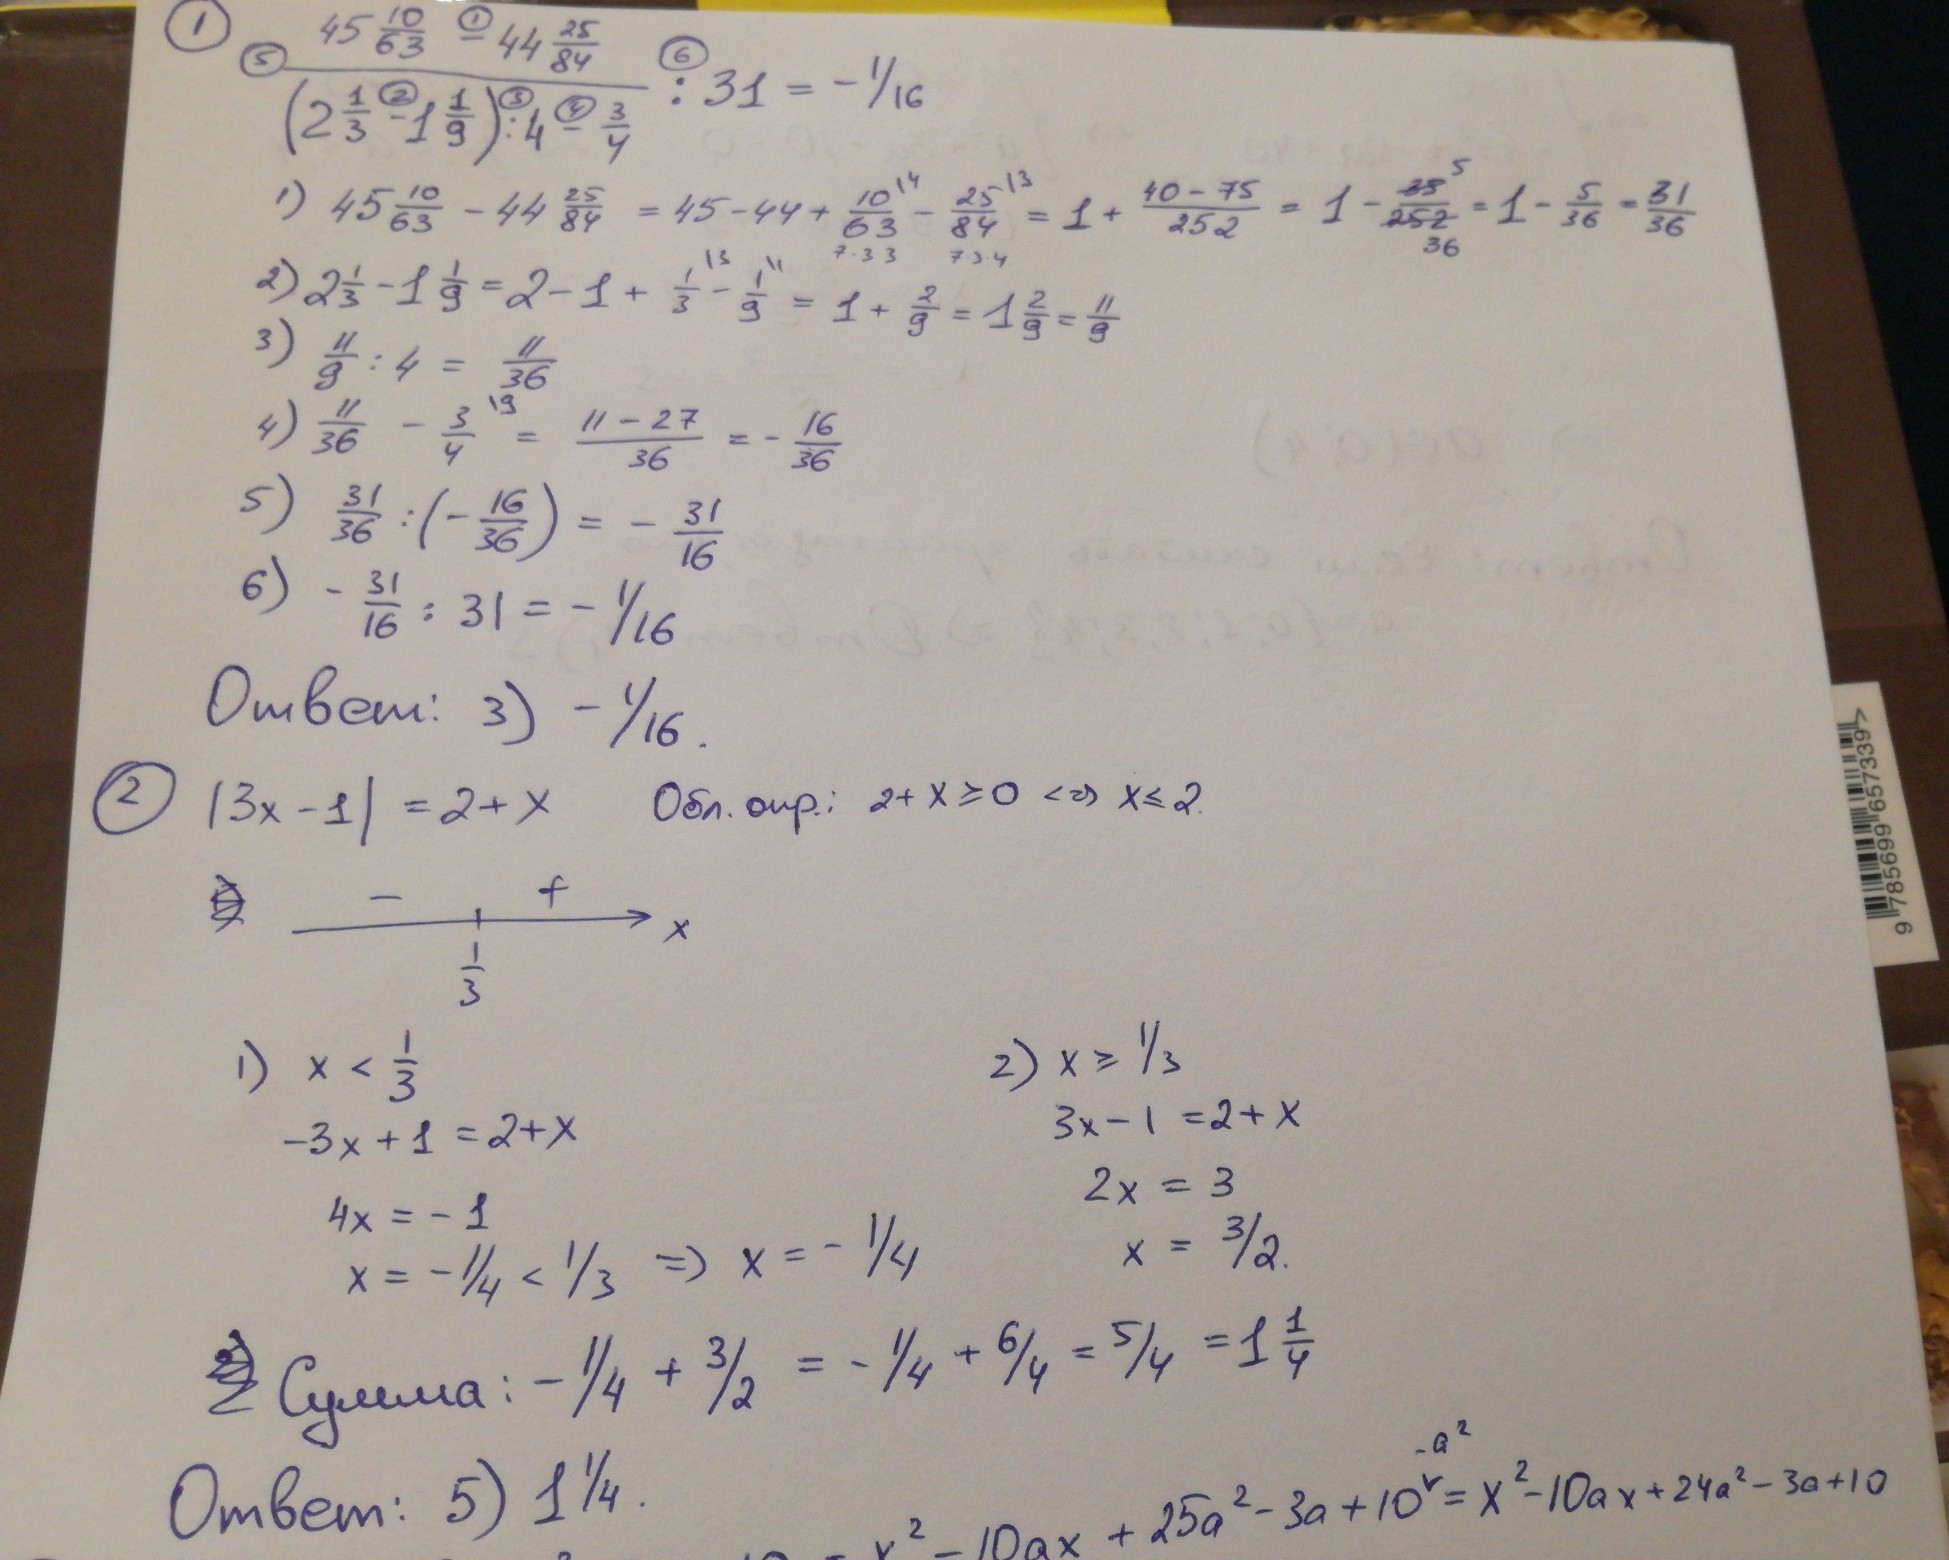 1 (45 10/63 - 44 25/84) / ((2 1/3 - 1 1/9) : 4 - 3/4) : 31 = - 1/16
1) 45 10/63 - 44 25/84 = 45 - 44 + 10/63 \4 - 25/84 \3 = 1 + (40 - 75)/252 = 1 - 35/252 = 1 - 5/36 = 31/36
7·3·3 7·3·4
2) 2 1/3 - 1 1/9 = 2 - 1 + 1/3 \3 - 1/9 \1 = 1 + 2/9 = 1 2/9 = 11/9
3) 11/9 : 4 = 11/36
4) 11/36 - 3/4 \9 = (11 - 27)/36 = - 16/36
5) 31/36 : (- 16/36) = - 31/16
6) - 31/16 : 31 = - 1/16
Ответ: 3) - 1/16.
2 |3x - 1| = 2 + x Обл. опр.: 2 + x ≥ 0 <=> x ≤ 2.
- +
1/3 x
1) x < 1/3
-3x + 1 = 2 + x
4x = - 1
x = - 1/4 < 1/3 => x = - 1/4
2) x ≥ 1/3
3x - 1 = 2 + x
2x = 3
x = 3/2.
Сумма: - 1/4 + 3/2 = - 1/4 + 6/4 = 5/4 = 1 1/4
Ответ: 5) 1 1/4.
= x² - 10ax + 25a² - 3a + 10 - a² = x² - 10ax + 24a² - 3a + 10
9 785699 657339>